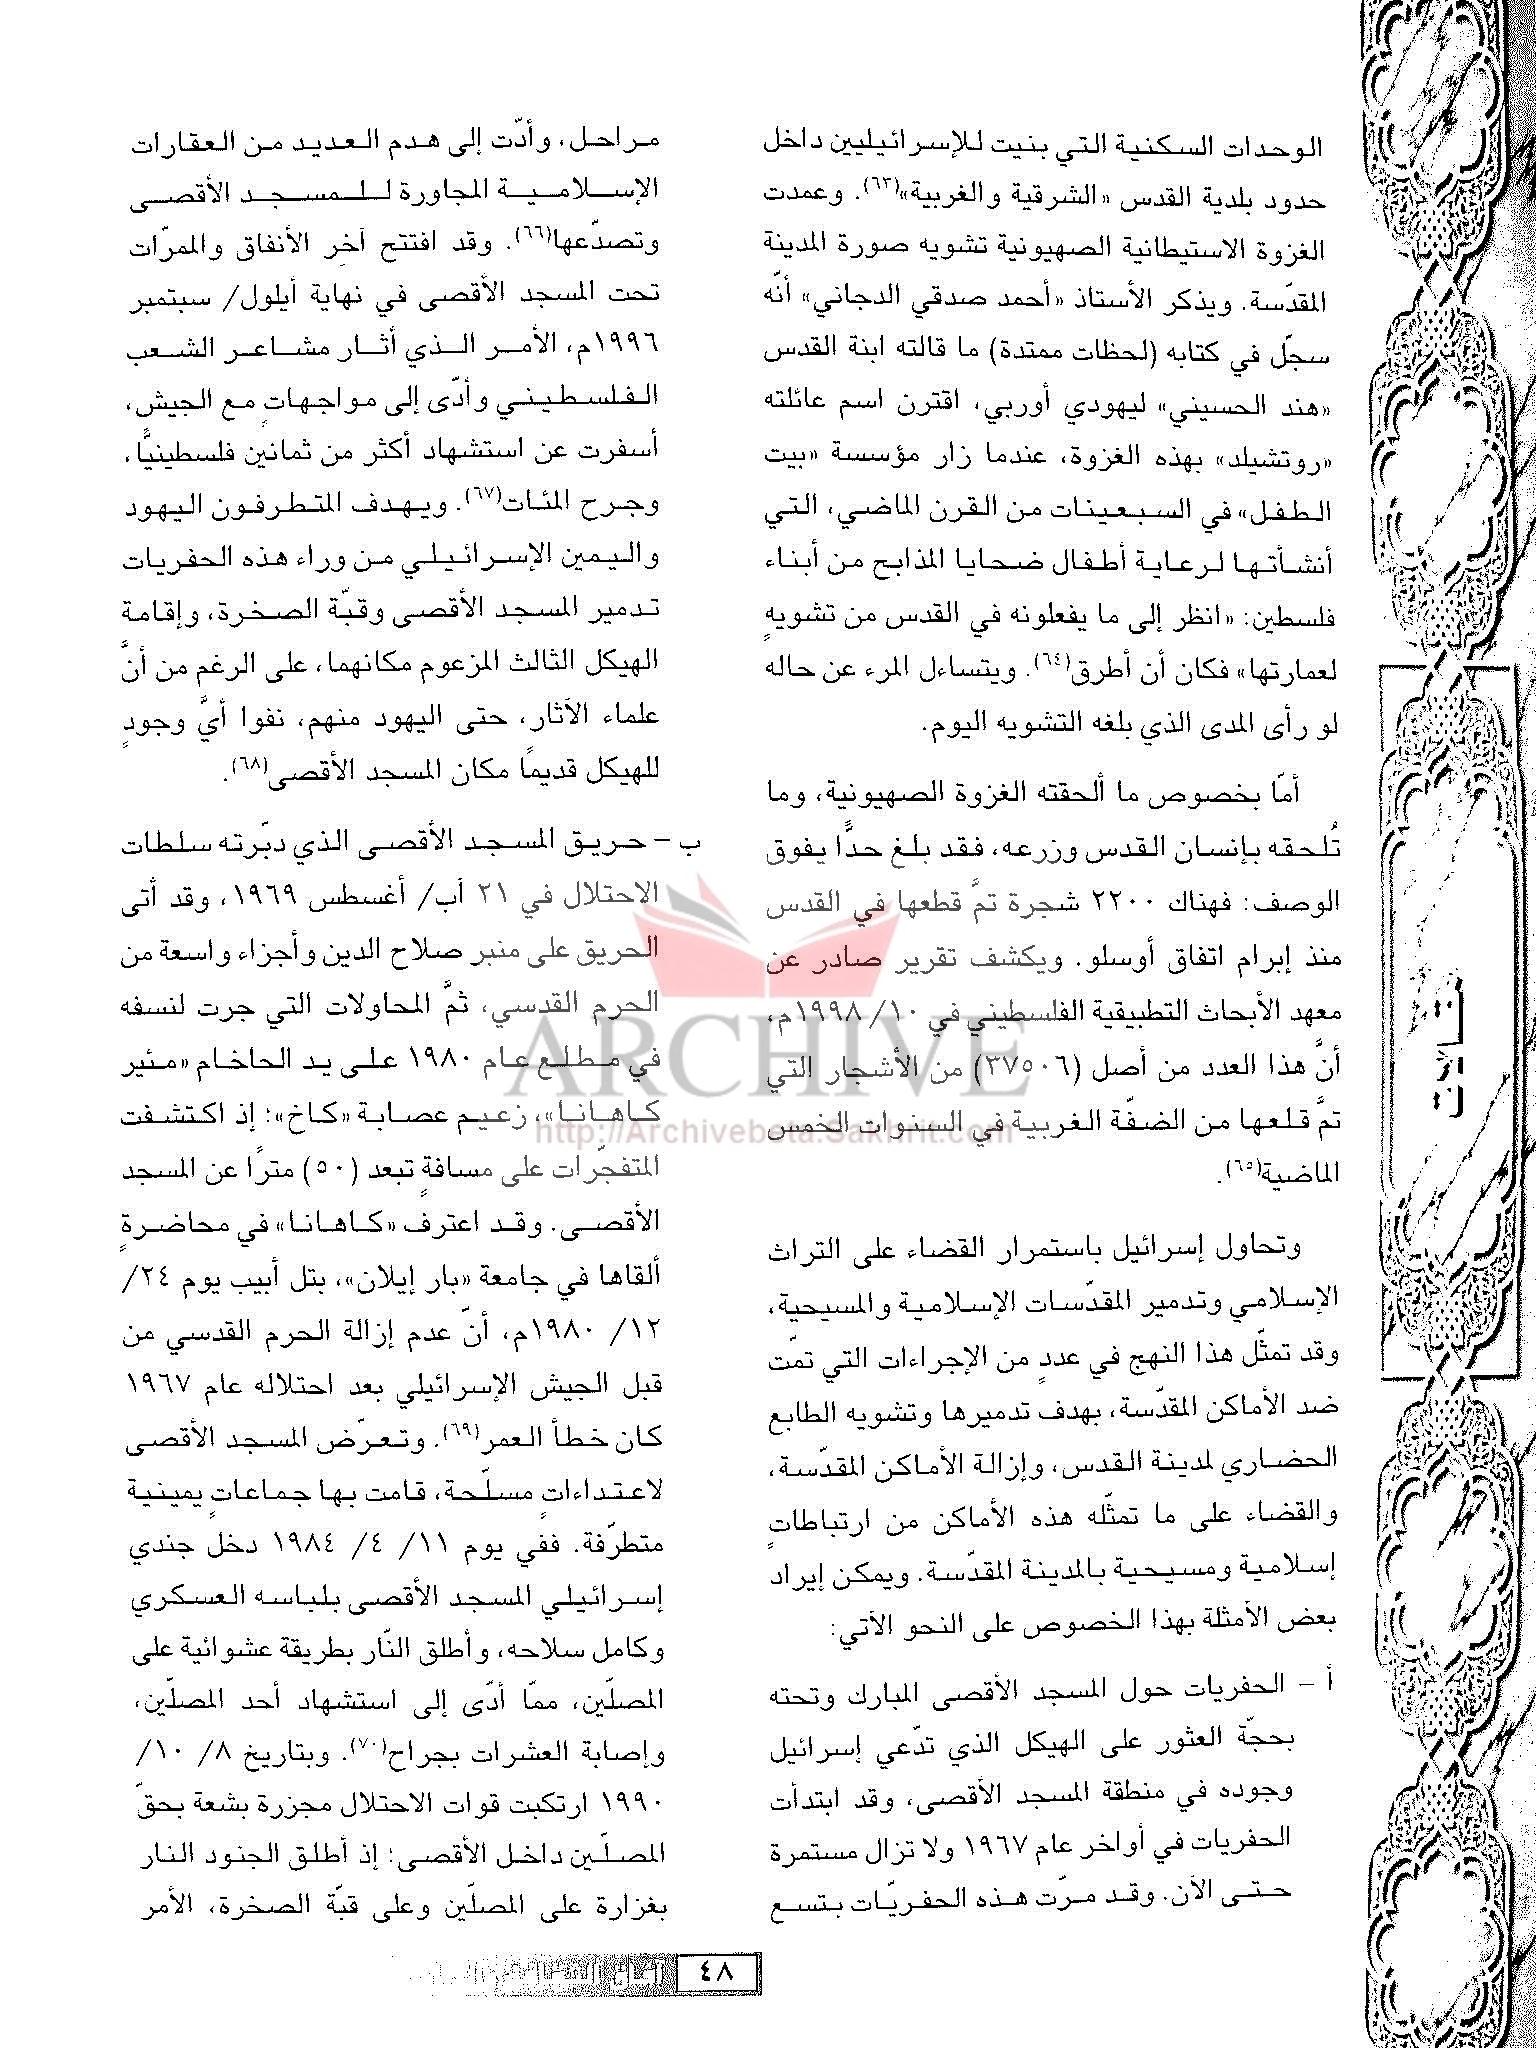 الوحدات السكنية التي بنيت للإسرائيليين داخل
حدود بلدية القدس «الشرقية والغربية»(٦٣). وعمدت
الغزوة الاستيطانية الصهيونية تشويه صورة المدينة
المقدّسة. ويذكر الأستاذ «أحمد صدقي الدجاني» أنّه
سجّل في كتابه (لحظات ممتدة) ما قالته ابنة القدس
«هند الحسيني» ليهودي أوربي، اقترن اسم عائلته
«روتشيلد» بهذه الغزوة، عندما زار مؤسسة «بيت
الطفل» في السبعينات من القرن الماضي، التي
أنشأتها لرعاية أطفال ضحايا المذابح من أبناء
فلسطين: «انظر إلى ما يفعلونه في القدس من تشويهٍ
لعمارتها» فكان أن أطرق(٦٤). ويتساءل المرء عن حاله
لو رأى المدى الذي بلغه التشويه اليوم.
أمّا بخصوص ما ألحقته الغزوة الصهيونية، وما
تُلحقه بإنسان القدس وزرعه، فقد بلغ حدًّا يفوق
الوصف: فهناك ٢٢٠٠ شجرة تمَّ قطعها في القدس
منذ إبرام اتفاق أوسلو. ويكشف تقرير صادر عن
معهد الأبحاث التطبيقية الفلسطيني في ١٠/ ١٩٩٨م،
أنَّ هذا العدد من أصل (٣٧٥٠٦) من الأشجار التي
تمَّ قلعها من الضفّة الغربية في السنوات الخمس
الماضية(٦٥).
وتحاول إسرائيل باستمرار القضاء على التراث
الإسلامي وتدمير المقدّسات الإسلامية والمسيحية،
وقد تمثّل هذا النهج في عددٍ من الإجراءات التي تمّت
ضد الأماكن المقدّسة، بهدف تدميرها وتشويه الطابع
الحضاري لمدينة القدس، وإزالة الأماكن المقدّسة،
والقضاء على ما تمثّله هذه الأماكن من ارتباطاتٍ
إسلامية ومسيحية بالمدينة المقدّسة. ويمكن إيراد
بعض الأمثلة بهذا الخصوص على النحو الآتي:
أ – الحفريات حول المسجد الأقصى المبارك وتحته
بحجّة العثور على الهيكل الذي تدّعي إسرائيل
وجوده في منطقة المسجد الأقصى، وقد ابتدأت
الحفريات في أواخر عام ١٩٦٧ ولا تزال مستمرة
حتى الآن. وقد مرّت هذه الحفريّات بتسع
مراحل، وأدّت إلى هدم العديد من العقارات
الإسلامية المجاورة للمسجد الأقصى
وتصدّعها(٦٦). وقد افتتح آخر الأنفاق والممرّات
تحت المسجد الأقصى في نهاية أيلول/ سبتمبر
١٩٩٦م، الأمر الذي أثار مشاعر الشعب
الفلسطيني وأدّى إلى مواجهاتٍ مع الجيش،
أسفرت عن استشهاد أكثر من ثمانين فلسطينيًّا،
وجرح المئات(٦٧). ويهدف المتطرفون اليهود
واليمين الإسرائيلي من وراء هذه الحفريات
تدمير المسجد الأقصى وقبّة الصخرة، وإقامة
الهيكل الثالث المزعوم مكانهما، على الرغم من أنَّ
علماء الآثار، حتى اليهود منهم، نفوا أيَّ وجودٍ
للهيكل قديمًا مكان المسجد الأقصى(٦٨).
ب – حريق المسجد الأقصى الذي دبّرته سلطات
الاحتلال في ٢١ آب/ أغسطس ١٩٦٩، وقد أتى
الحريق على منبر صلاح الدين وأجزاء واسعة من
الحرم القدسي، ثمَّ المحاولات التي جرت لنسفه
في مطلع عام ١٩٨٠ على يد الحاخام «مئير
كاهانا»، زعيم عصابة «كاخ»؛ إذ اكتشفت
المتفجّرات على مسافةٍ تبعد (٥٠) مترًا عن المسجد
الأقصى. وقد اعترف «كاهانا» في محاضرةٍ
ألقاها في جامعة «بار إيلان»، بتل أبيب يوم ٢٤/
١٢/ ١٩٨٠م، أنّ عدم إزالة الحرم القدسي من
قبل الجيش الإسرائيلي بعد احتلاله عام ١٩٦٧
كان خطأ العمر(٦٩). وتعرّض المسجد الأقصى
لاعتداءاتٍ مسلّحة، قامت بها جماعاتٍ يمينية
متطرّفة. ففي يوم ١١/ ٤/ ١٩٨٤ دخل جندي
إسرائيلي المسجد الأقصى بلباسه العسكري
وكامل سلاحه، وأطلق النّار بطريقة عشوائية على
المصلّين، ممّا أدّى إلى استشهاد أحد المصلّين،
وإصابة العشرات بجراح(٧٠). وبتاريخ ٨/ ١٠/
١٩٩٠ ارتكبت قوات الاحتلال مجزرة بشعة بحقّ
المصلّين داخل الأقصى؛ إذ أطلق الجنود النار
بغزارة على المصلّين وعلى قبّة الصخرة، الأمر
مقالات
ARCHIVE
http://Archivebeta.Sakhrit.com
٤٨